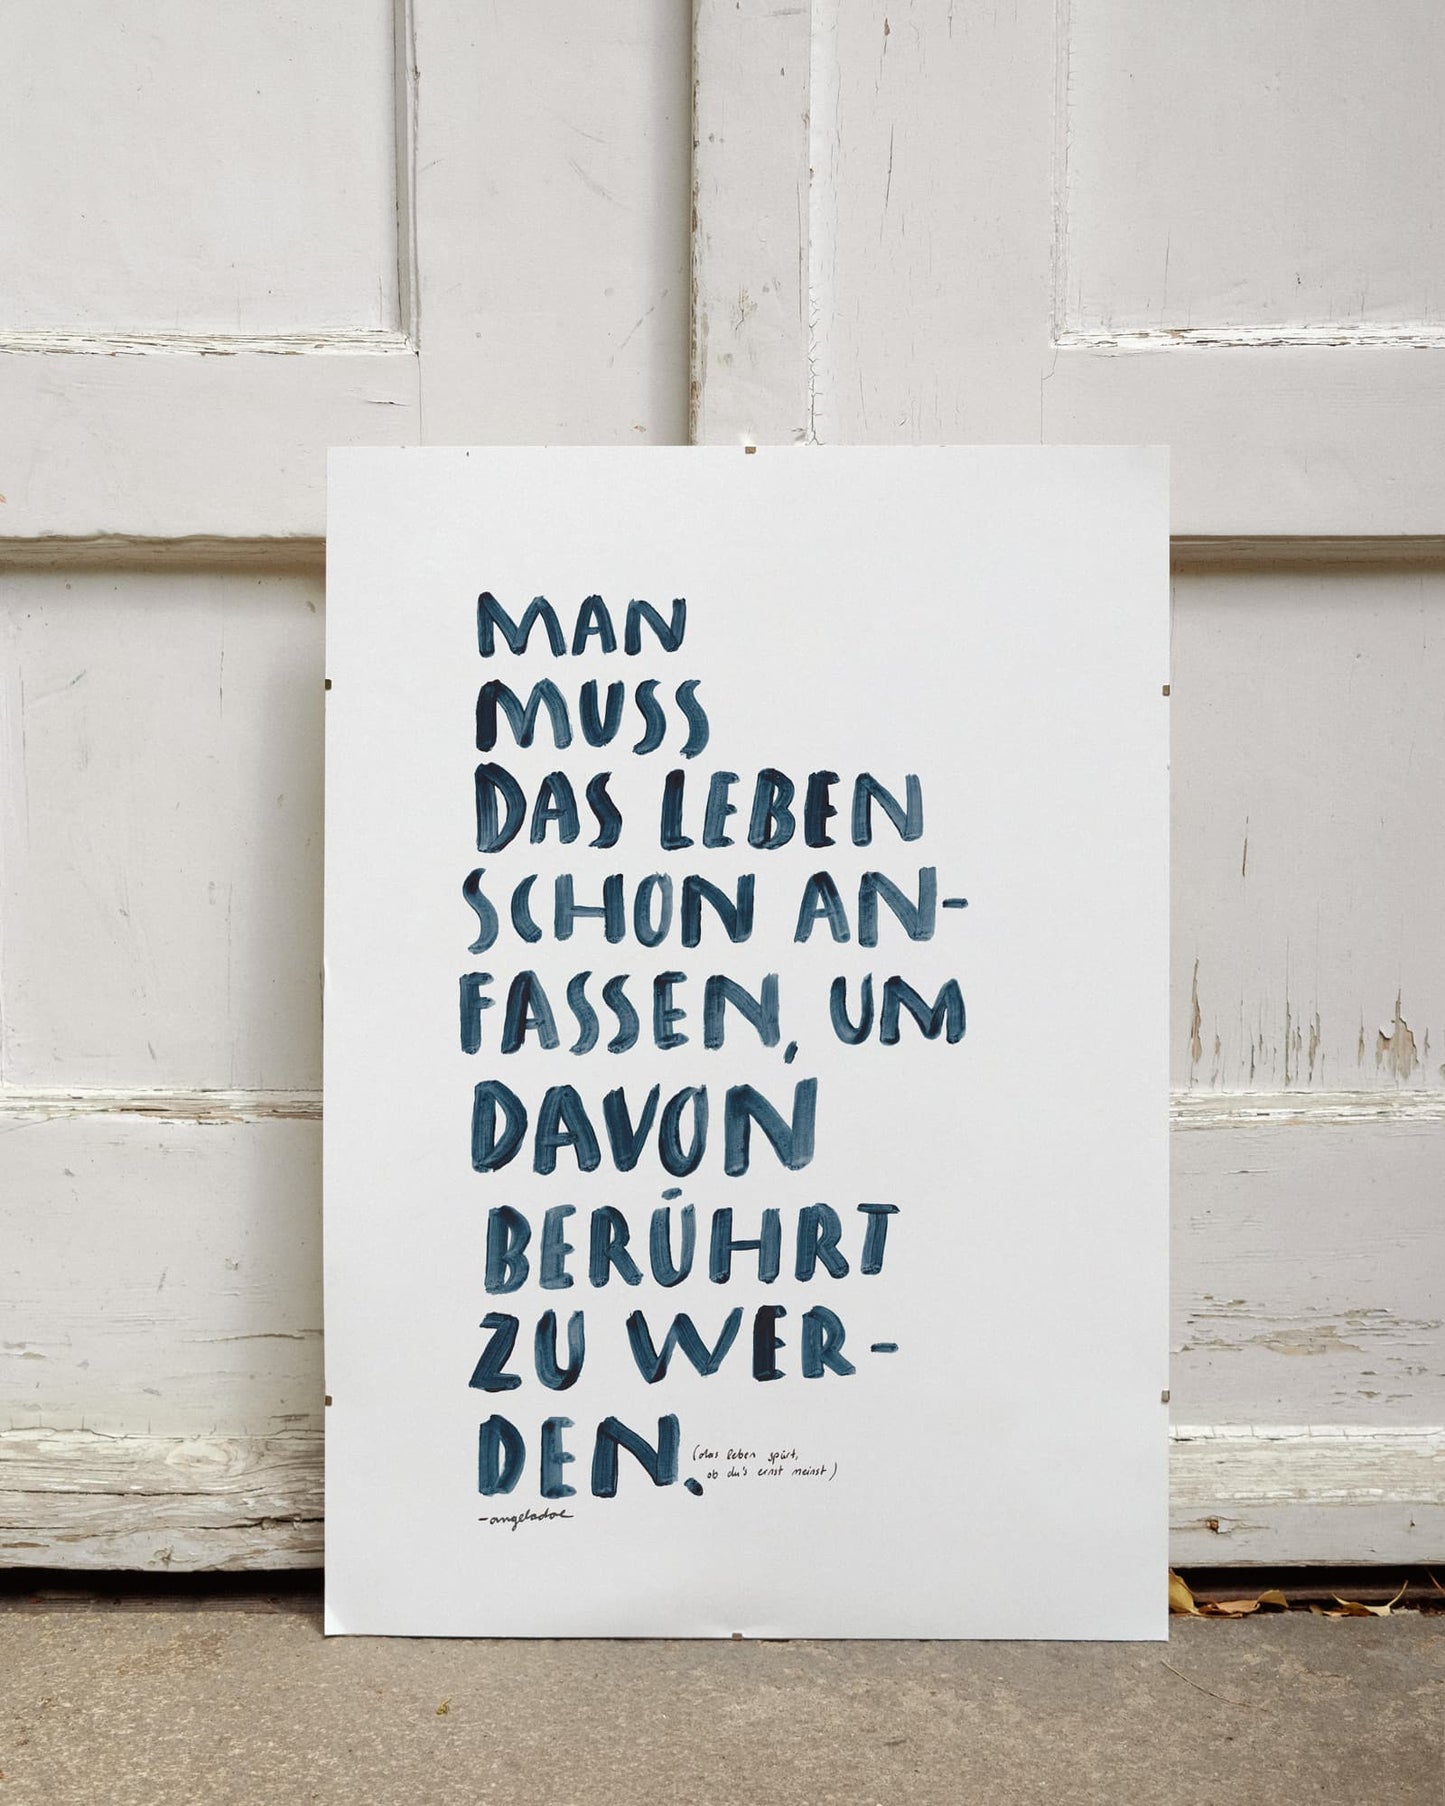 MAN
MUSS
DAS LEBEN
SCHON AN-
FASSEN, UM
DAVON
BERÜHRT
ZU WER-
DEN.
(das leben spürt,
ob du's ernst meinst)
-angeladoe